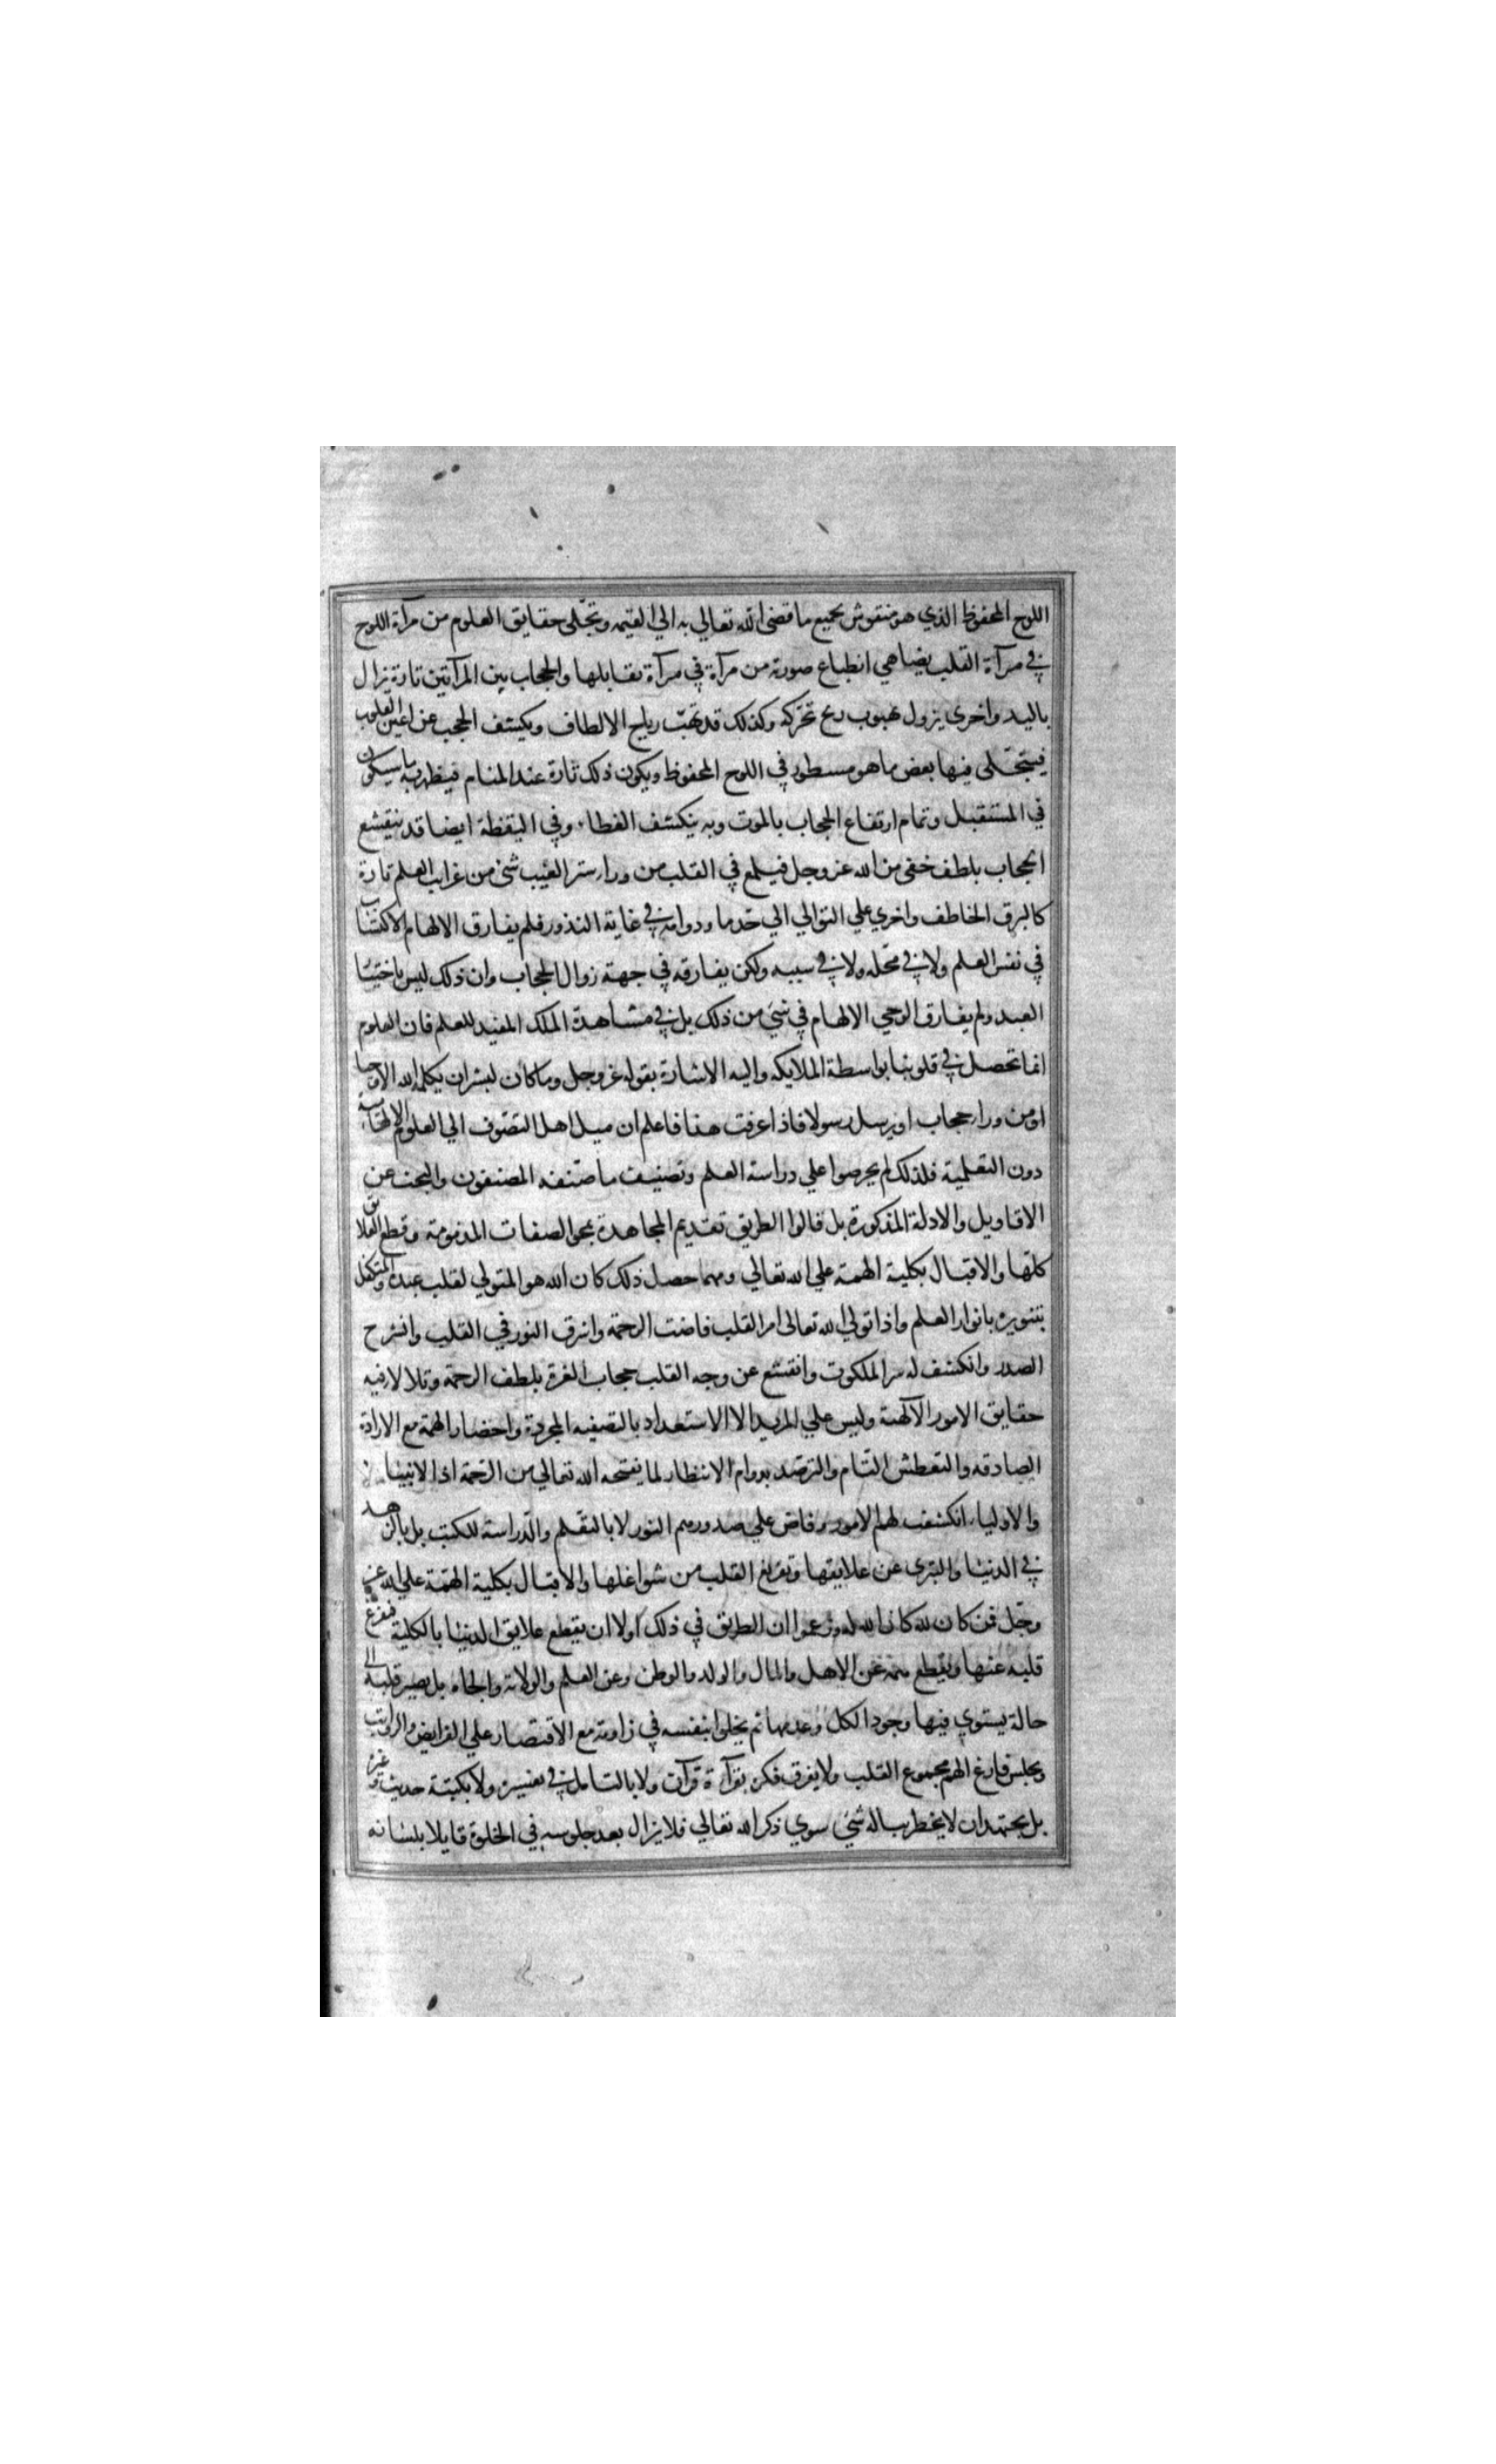 اللوح المحفوظ الذي هو منقوش بجميع ما قضى الله تعالي به الي القيمه وتجلى حقايق العلوم من مرآة اللوح
في مرآة القلب يضاهي انطباع صورة من مرآة في مرآة تقابلها والحجاب بين المرآتين تارة يزال
باليد واخري يزول بهبوب ريح تحركه وكذلك قد تهب رياح الالطاف ويكشف الحجب عن اعين القلوب
فيتجلى فيها بعض ما هو مسطور في اللوح المحفوظ ويكون ذلك تارة عند المنام فيظهر به ما سيكون
في المستقبل وتمام ارتفاع الحجاب بالموت وبه ينكشف الغطاء وفي اليقظة ايضا قد ينقشع
الحجاب بلطف خفى من الله عز وجل فيلمع في القلب من وراء ستر الغيب شئ من غرايب العلم تارة
كالبرق الخاطف واخري علي التوالي الي حد ما ودوامه في غاية الندور فلم يفارق الالهام الاكتساب
في نفس العلم ولا في محله ولا في سببه ولكن يفارقه في جهة زوال الحجاب وان ذلك ليس باختيا
العبد ولم يفارق الوحي الالهام في شئ من ذلك بل في مشاهدة الملك المفيد للعلم فان العلوم
انما تحصل في قلوبنا بواسطة الملايكه واليه الاشارة بقوله عز وجل وما كان لبشر ان يكلمه الله الا وحيا
او من وراء حجاب او يرسل رسولا فاذا عرفت هذا فاعلم ان ميل اهل التصوف الي العلوم الالهامية
دون التعلمية فلذلك لم يحرصوا علي دراسة العلم وتصنيف ما صنفه المصنفون والبحث عن
الاقاويل والادلة المذكورة بل قالوا الطريق تقديم المجاهدة بمحو الصفات المذمومة وقطع العلايق
كلها والاقبال بكلية الهمة علي الله تعالي ومهما حصل ذلك كان الله هو المتولي لقلب عبده والمتكفل
بتنويره بانوار العلم واذا تولي الله تعالى امر القلب فاضت الرحمة واشرق النور في القلب وانشرح
الصدر وانكشف له سر الملكوت وانقشع عن وجه القلب حجاب الغرة بلطف الرحمة وتلالا فيه
حقايق الامور الآلهية وليس علي المريد الا الاستعداد بالتصفيه المجردة واحضار الهمة مع الارادة
الصادقه والتعطش التام والترصد بدوام الانتظار لما يفتحه الله تعالي من الرحمة اذ الانبيا
والاوليا انكشف لهم الامور وفاض علي صدورهم النور لا بالتعلم والدراسة للكتب بل بالزهد
في الدنيا والتبرى عن علايقها وتفريغ القلب من شواغلها والاقبال بكلية الهمة علي الله عز
وجل فمن كان لله كان الله له وزعموا ان الطريق في ذلك اولا ان يقطع علايق الدنيا بالكلية فيفرغ
قلبه عنها ويقطع همه عن الاهل والمال والولد والوطن وعن العلم والولاية والجاه بل يصير قلبه الى
حالة يستوي فيها وجود الكل وعدمها ثم يخلوا بنفسه في زاوية مع الاقتصار علي الفرايض والرواتب
ويجلس فارغ الهم مجموع القلب ولا يفرق فكره بقرآءة قرآن ولا بالتامل في تفسيره ولا بكتبة حديث وغيره
بل يجتهد ان لا يخطر بباله شئ سوي ذكر الله تعالي فلا يزال بعد جلوسه في الخلوة قايلا بلسانه